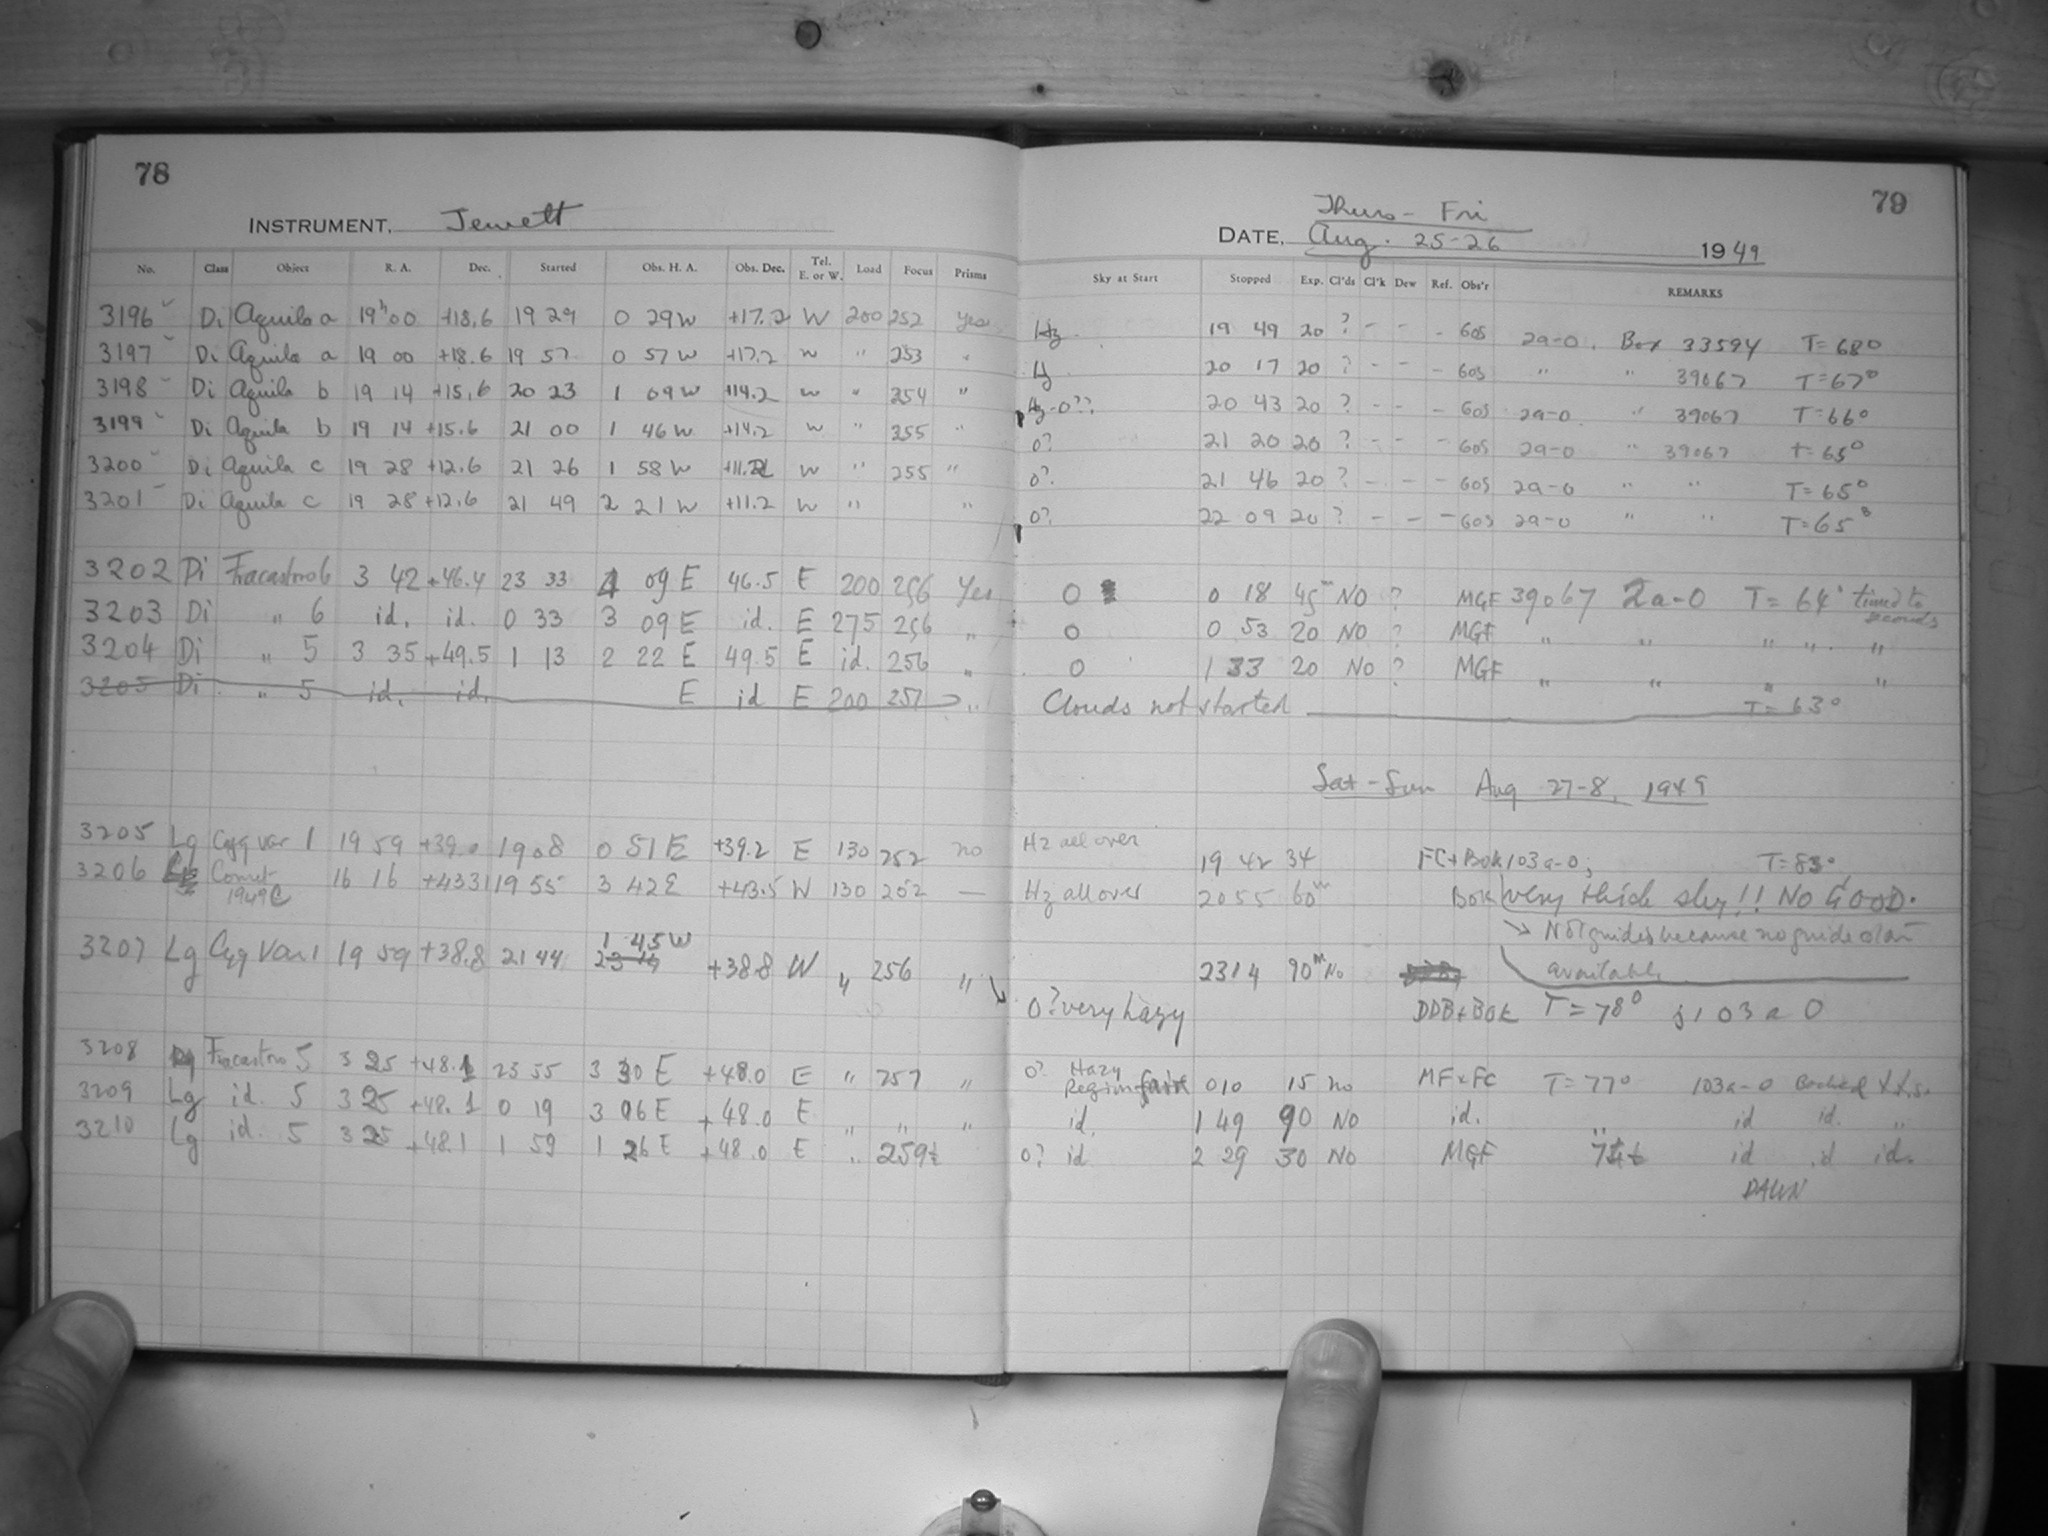 78
INSTRUMENT, Jewett
No. Class Object R. A. Dec. Started Obs. H. A. Obs. Dec. Tel. E. or W. Load Focus Prisms
3196 Di Aquila a 19h 00 +18.6 19 29 0 29 W +17.2 W 200 252 Yes
3197 Di Aquila a 19 00 +18.6 19 57 0 57 W +17.2 W " 253 "
3198 Di Aquila b 19 14 +15.6 20 23 1 09 W +14.2 W " 254 "
3199 Di Aquila b 19 14 +15.6 21 00 1 46 W +14.2 W " 255 "
3200 Di Aquila c 19 28 +12.6 21 26 1 58 W +11.2 W " 255 "
3201 Di Aquila c 19 28 +12.6 21 49 2 21 W +11.2 W " "
3202 Di Fracastoro 6 3 42 +46.4 23 33 4 09 E 46.5 E 200 256 Yes
3203 Di " 6 id. id. 0 33 3 09 E id. E 275 256 "
3204 Di " 5 3 35 +49.5 1 13 2 22 E 49.5 E id. 256 "
3205 Di " 5 id. id. E id E 200 257 "
3205 Lg Cyg var 1 19 59 +39.0 19 08 0 51 E +39.2 E 130 252 no
3206 Comet 1949c 16 16 +43.3 19 55 3 42 E +43.5 W 130 252 —
3207 Lg Cyg Var 1 19 59 +38.8 21 44 1 45 W +38.8 W " 256 "
3208 Fracastoro 5 3 25 +48.1 23 55 3 30 E +48.0 E " 257 "
3209 Lg id. 5 3 25 +48.1 0 19 3 06 E +48.0 E " " "
3210 Lg id. 5 3 25 +48.1 1 59 1 26 E +48.0 E " 259½
79
Thurs - Fri
DATE, Aug. 25-26 1949
Sky at Start Stopped Exp. Cl'ds Cl'k Dew Ref. Obs'r REMARKS
Hz 19 49 20 ? - - - GOS 2a-0. Box 33594 T=68°
Hz 20 17 20 ? - - - GOS " " 39067 T=67°
Hz-0?? 20 43 20 ? - - - GOS 2a-0 " 39067 T=66°
0? 21 20 20 ? - - - GOS 2a-0 " 39067 T=65°
0? 21 46 20 ? - - - GOS 2a-0 " " T=65°
0? 22 09 20 ? - - - GOS 2a-0 " " T=65°
0 0 18 45m NO ? MGF 39067 2a-0 T=64° timed to
0 0 53 20 NO ? MGF " " " " "
0 1 33 20 No ? MGF " " " "
Clouds not started T=63°
Sat-Sun Aug 27-8, 1949
Hz all over 19 42 34 FC+Bok 103a-0; T=83°
Hz all over 20 55 60m Bok very thick sky!! NO GOOD.
→ Not guided because no guide star
available
23 14 90m No
0? very hazy DDB+Bok T=78° 103a0
0? Hazy Region fair 0 10 15 no MF+FC T=77° 103a-0
id. 1 49 90 NO id. " id id. "
0? id 2 29 30 NO MGF id id id.
DAWN